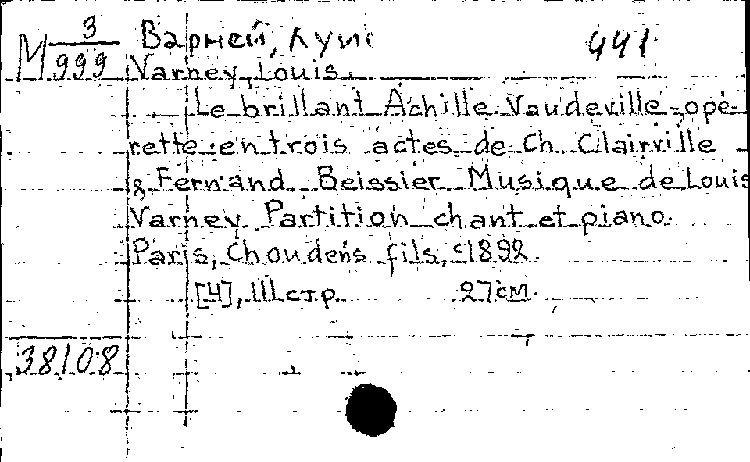 М 3/999 Варней, Луи 441
Varney, Louis.
Le brillant Achille. Vaudeville-opé-
rette en trois actes de Ch. Clairville
& Fernand Beissier. Musique de Louis
Varney. Partition chant et piano.
Paris, Choudens fils, c1892.
[4], 111 стр. 27 см.
38108